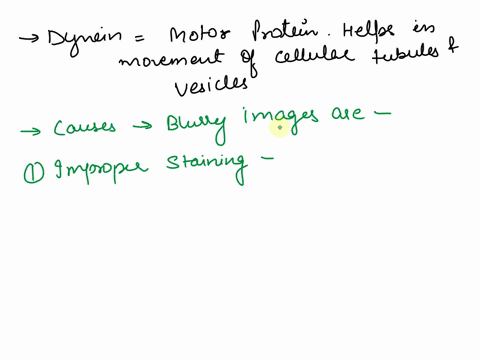 → Dynein = Motor Protein. Helps in
movement of cellular tubules &
vesicles
→ Causes → Blurry images are -
① Improper Staining -